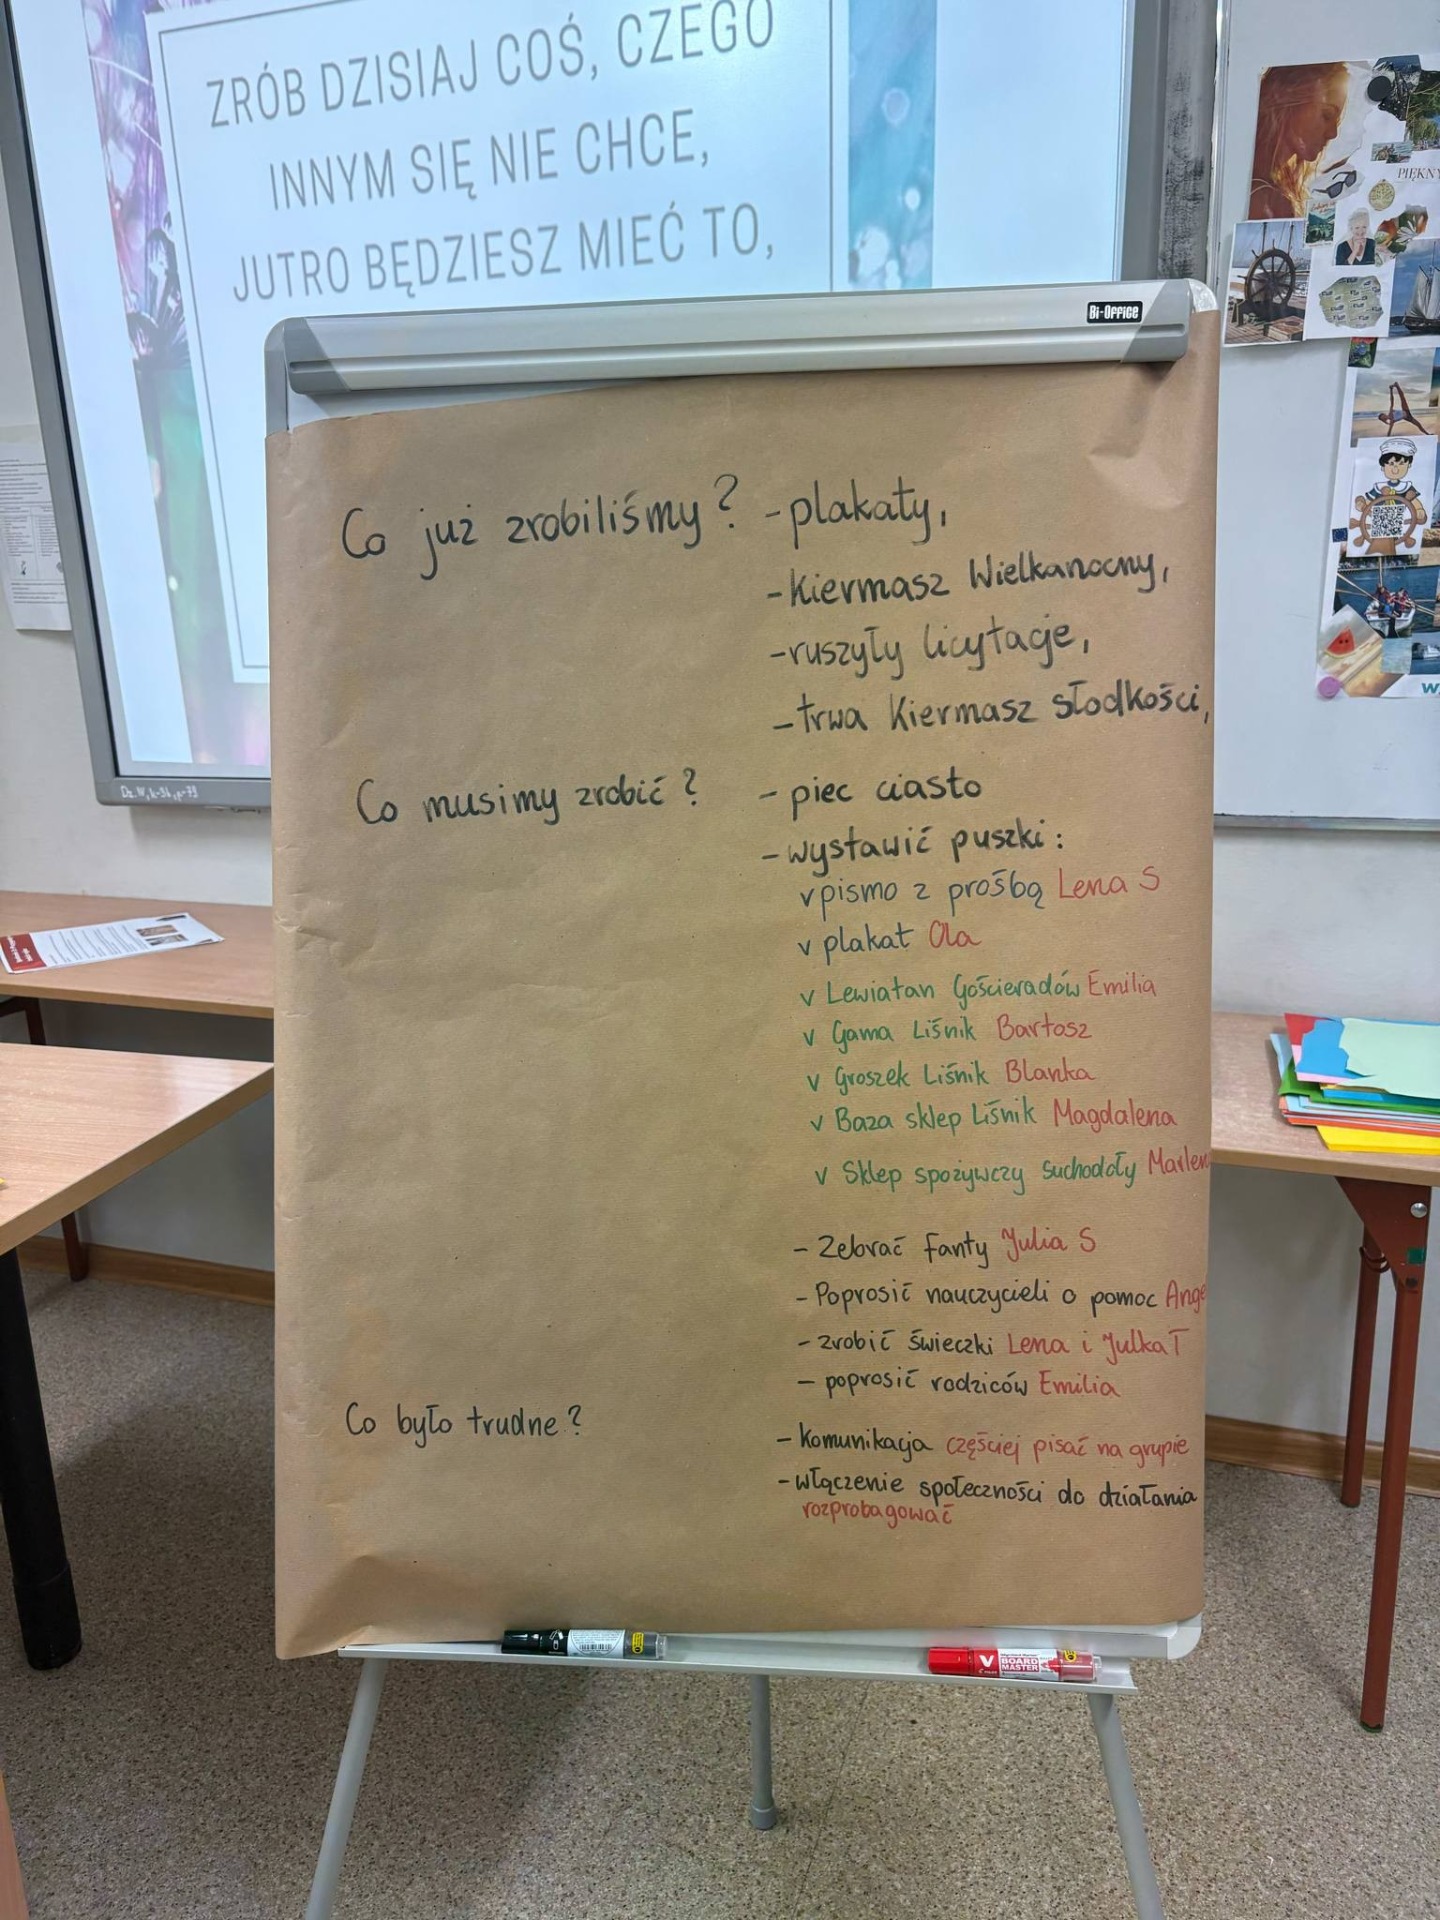 ZRÓB DZISIAJ COŚ, CZEGO
INNYM SIĘ NIE CHCE,
JUTRO BĘDZIESZ MIEĆ TO,
Bi-Office
PIĘKNY
Co już zrobiliśmy? - plakaty,
- Kiermasz Wielkanocny,
- ruszyły licytacje,
- trwa Kiermasz słodkości,
Co musimy zrobić? - piec ciasto
- wystawić puszki:
v pismo z prośbą Lena S
v plakat Ola
v Lewiatan Gościeradów Emilia
v Gama Liśnik Bartosz
v Groszek Liśnik Blanka
v Baza sklep Liśnik Magdalena
v Sklep spożywczy Suchodoły Marlen
- Zebrać fanty Julia S
- Poprosić nauczycieli o pomoc Ange
- zrobić świeczki Lena i Julka T
- poprosić rodziców Emilia
Co było trudne?
- Komunikacja częściej pisać na grupie
- włączenie społeczności do działania
rozprobagować
V BOARD
MASTER